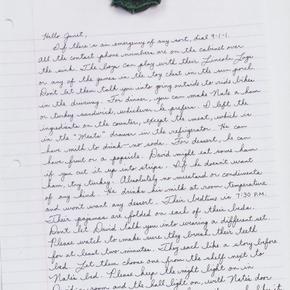 Hello Janet,
If there is an emergency of any sort, dial 9-1-1.
All the contact phone numbers are on the cabinet over
the sink. The boys can play with their Lincoln Logs
or any of the games in the toy chest in the sun porch.
Don't let them talk you into going outside to ride bikes
in the driveway. For dinner, you can make Nate a ham
or turkey sandwich, whichever he prefers. I left the
ingredients on the counter, except the meat, which is
in the "Meats" drawer in the refrigerator. He can
have milk to drink - no soda. For dessert, he can
have fruit or a popsicle. David might eat some ham
if you cut it up into strips. If he doesn't want
ham, try turkey. Absolutely no mustard or condiments
of any kind. He drinks his milk at room temperature
and won't want any dessert. Their bedtime is 7:30 P.M.
Their pajamas are folded on each of their beds.
Don't let David talk you into wearing a different set.
Please watch to make sure they brush their teeth
for at least two minutes. They each like a story before
bed. Let them choose one from the shelf next to
Nate's bed. Please keep the night light on in
room, and the hall light on, with Nate's door